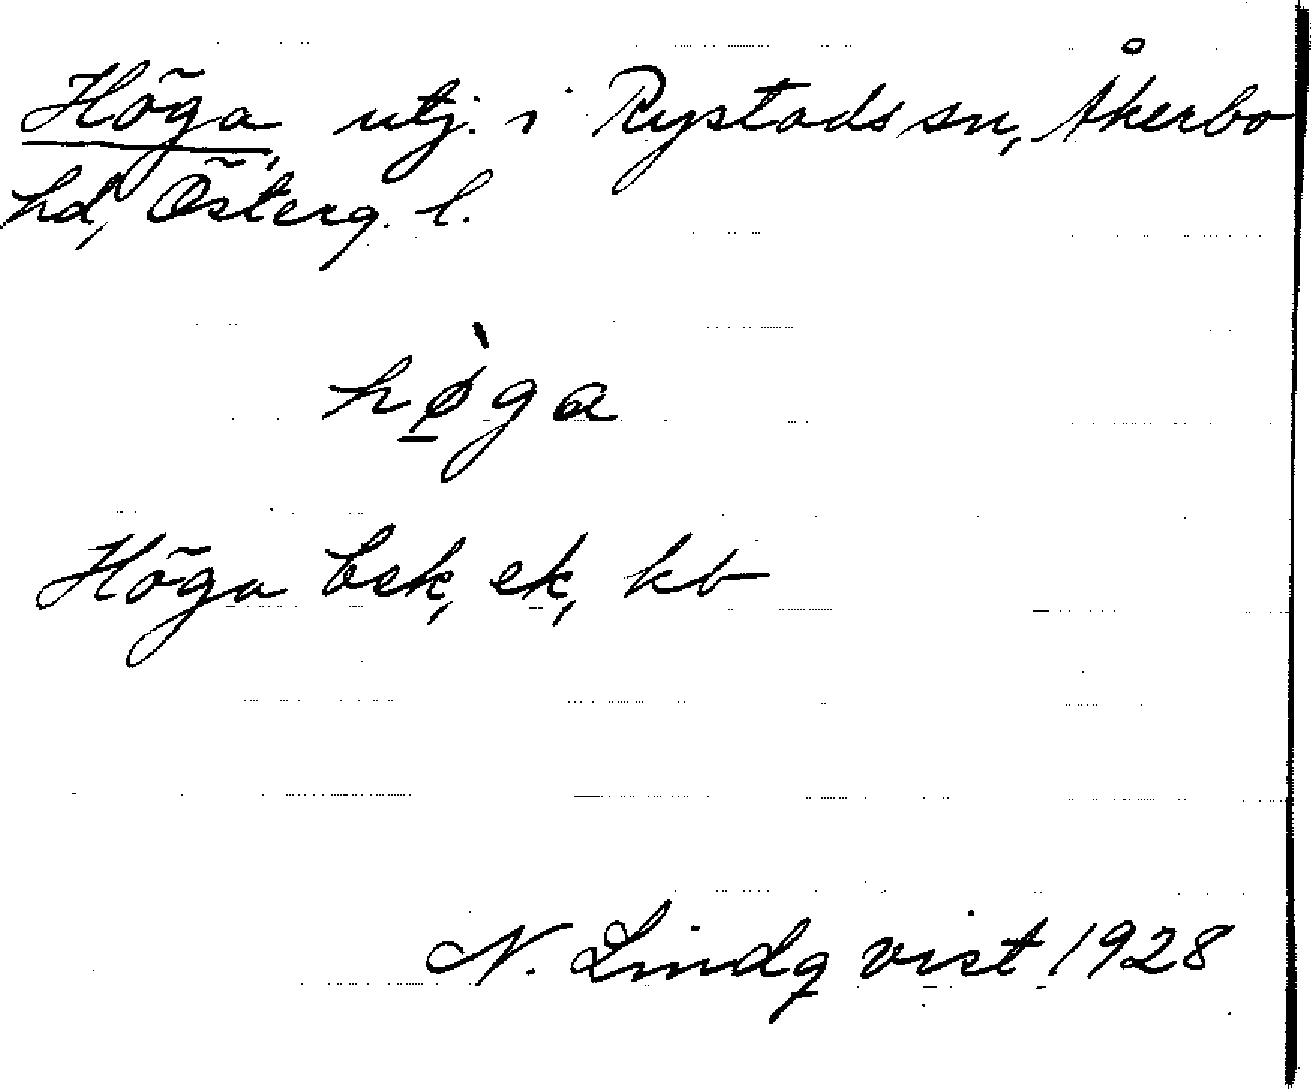 Höga, utj. i Rystads sn, Åkerbo
hd, Österg. l.
hø̱̀ga
Höga bek, ek, kb
N. Lindqvist 1928